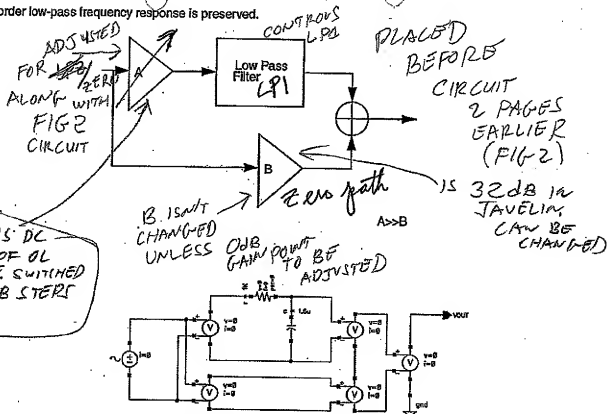 order low-pass frequency response is preserved.
ADJUSTED
FOR
ZERO
ALONG WITH
FIG 2
CIRCUIT
A
CONTROLS
LP1
Low Pass
Filter
LP1
PLACED
BEFORE
CIRCUIT
2 PAGES
EARLIER
(FIG 2)
B
Zero path
A>>B
IS 32dB in
JAVELIN,
CAN BE
CHANGED
B ISN'T
CHANGED
UNLESS 0dB
GAIN POINT
TO BE
ADJUSTED
IS DC
OF OL
SWITCHED
B STEPS
c 1.0u
V v=0
i=0
V v=0
i=0
i=0
V v=0
i=0
vout
V v=0
i=0
V v=0
i=0
gnd